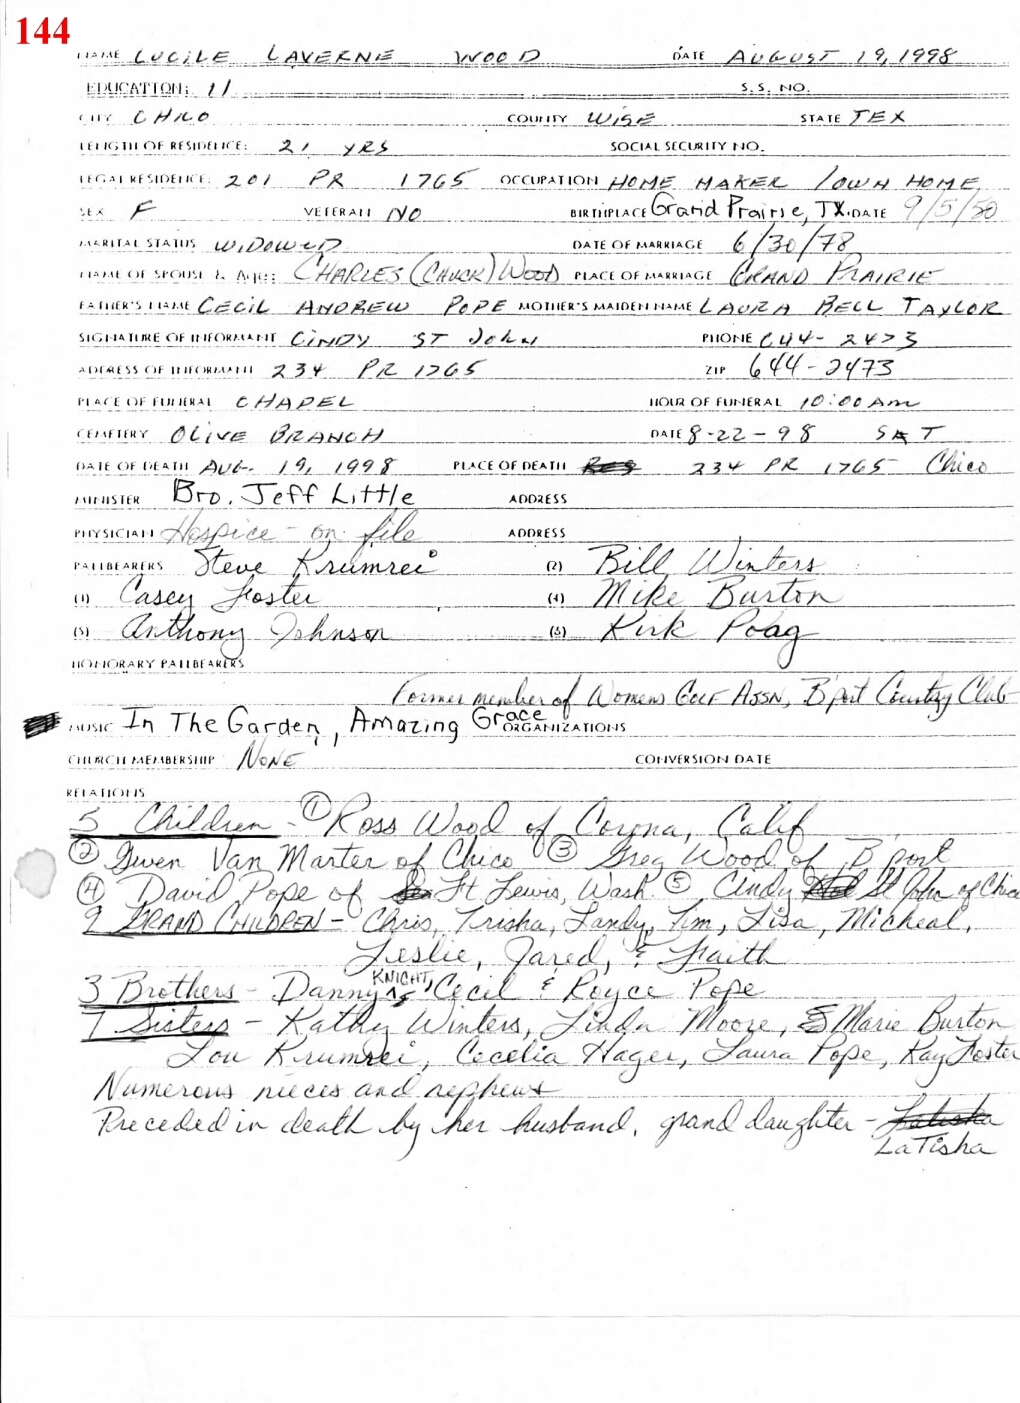 144
NAME LUCILE LAVERNE WOOD DATE AUGUST 19, 1998
EDUCATION: 11 S.S. NO.
CITY CHICO COUNTY WISE STATE TEX
LENGTH OF RESIDENCE: 21 YRS SOCIAL SECURITY NO.
LEGAL RESIDENCE: 201 PR 1765 OCCUPATION HOME MAKER / OWN HOME
SEX F VETERAN NO BIRTHPLACE Grand Prairie, TX. DATE 9/5/50
MARITAL STATUS WIDOWED DATE OF MARRIAGE 6/30/78
NAME OF SPOUSE & Age: CHARLES (CHUCK) WOOD PLACE OF MARRIAGE GRAND PRAIRIE
FATHER'S NAME CECIL ANDREW POPE MOTHER'S MAIDEN NAME LAURA BELL TAYLOR
SIGNATURE OF INFORMANT CINDY ST JOHN PHONE 644-2473
ADDRESS OF INFORMANT 234 PR 1765 ZIP 644-2473
PLACE OF FUNERAL CHAPEL HOUR OF FUNERAL 10:00 AM
CEMETERY OLIVE BRANCH DATE 8-22-98 SAT
DATE OF DEATH AUG. 19, 1998 PLACE OF DEATH 234 PR 1765 Chico
MINISTER Bro. Jeff Little ADDRESS
PHYSICIAN Hospice - on file ADDRESS
PALLBEARERS Steve Krumrei (2) Bill Winters
(3) Casey Foster (4) Mike Burton
(5) Anthony Johnson (6) Kirk Poag
HONORARY PALLBEARERS
Former member of Womens Golf Assn, B'port Country Club
MUSIC In The Garden, Amazing Grace ORGANIZATIONS
CHURCH MEMBERSHIP NONE CONVERSION DATE
RELATIONS
5 Children - ① Ross Wood of Corona, Calif
② Gwen Van Marter of Chico ③ Greg Wood of B'port
④ David Pope of Ft Lewis, Wash. ⑤ Cindy St John of Chico
9 GRAND CHILDREN - Chris, Trisha, Landy, Tim, Lisa, Micheal,
Leslie, Jared, & Faith
3 Brothers - Danny KNIGHT, Cecil & Royce Pope
7 Sisters - Kathy Winters, Linda Moore, Marie Burton
Lou Krumrei, Cecelia Hager, Laura Pope, Kay Foster
Numerous nieces and nephews
Preceded in death by her husband, grand daughter - Latisha
LaTisha